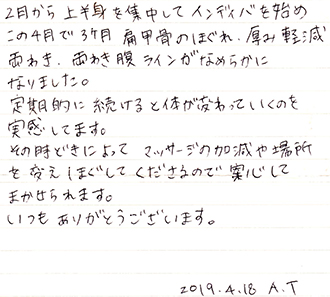 2月から 上半身を集中して インディバを始め
この4月で3ヶ月 肩甲骨のほぐれ、厚み軽減
両わき、両わき腹ラインがなめらかに
なりました。
定期的に続けると体が変わっていくのを
実感してます。
その時どきによって マッサージの加減や場所
を変え ほぐしてくださるので 安心して
まかせられます。
いつも ありがとうございます。
2019.4.18 A.T